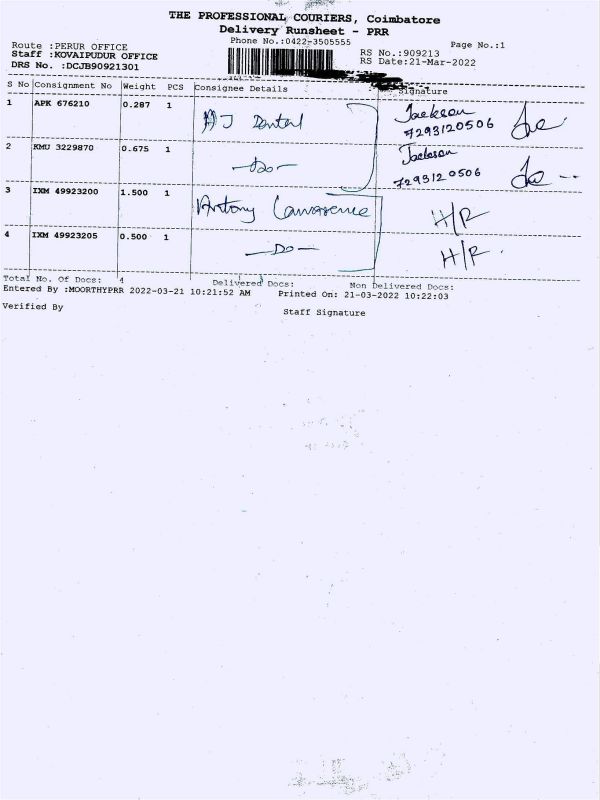 THE PROFESSIONAL COURIERS, Coimbatore
Delivery Runsheet - PRR
Phone No.:0422-3505555
Page No.:1
Route :PERUR OFFICE
Staff :KOVAIPUDUR OFFICE
DRS No. :DCJB90921301
RS No.:909213
RS Date:21-Mar-2022
S No Consignment No Weight PCS Consignee Details Signature
1 APK 676210 0.287 1 AJ Dental Jackson 7293120506
2 KMU 3229870 0.675 1 -Do- Jackson 7293120506
3 IXM 49923200 1.500 1 Antony Lawrence H/R
4 IXM 49923205 0.500 1 -Do- H/R.
Total No. Of Docs: 4 Delivered Docs: Non Delivered Docs:
Entered By :MOORTHYPRR 2022-03-21 10:21:52 AM Printed On: 21-03-2022 10:22:03
Verified By Staff Signature